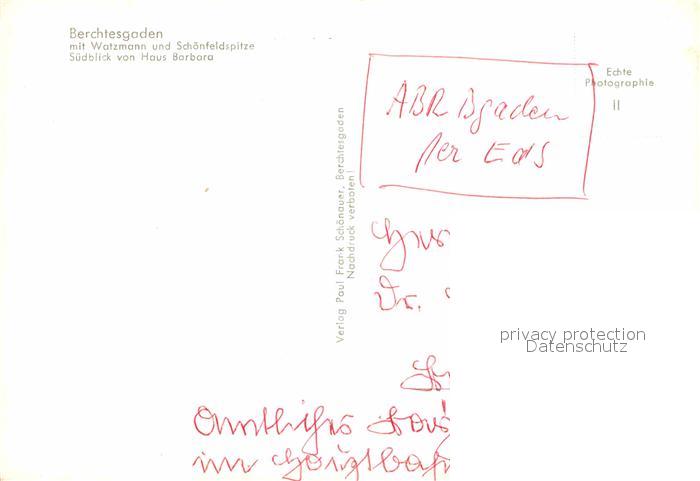 Berchtesgaden
mit Watzmann und Schönfeldspitze
Südblick von Haus Barbara
Echte
Photographie
II
ABR Bgaden
per
Verlag Paul Frank Schönauer, Berchtesgaden
Nachdruck verboten!
Dr.
privacy protection
Datenschutz
Amtliches
im